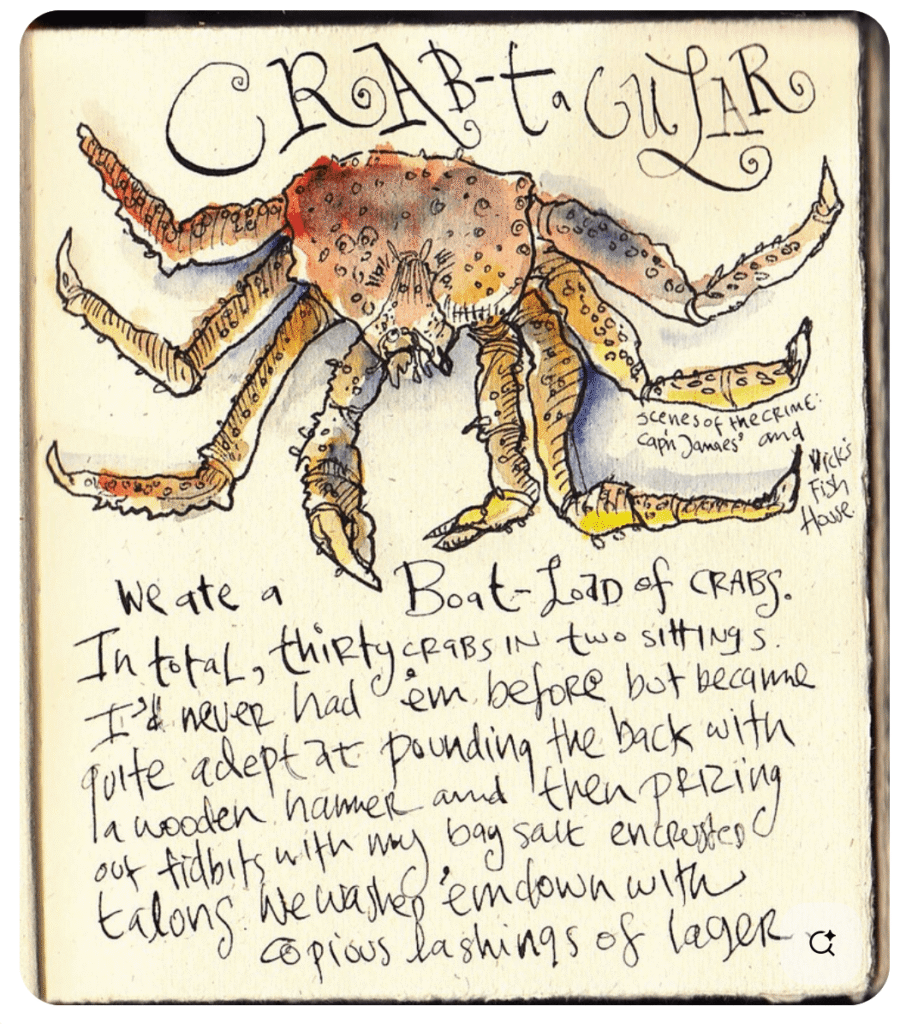 CRAB-taCULAR
scenes of the crime:
cap'n Jamaes' and
Vick's
Fish
House.
We ate a Boat-Load of CRABS.
In total, thirty crabs in two sittings.
I'd never had 'em before but became
quite adept at pounding the back with
a wooden hammer and then prizing
out tidbits with my bag salt encrusted
talons. We washed 'em down with
copious lashings of lager